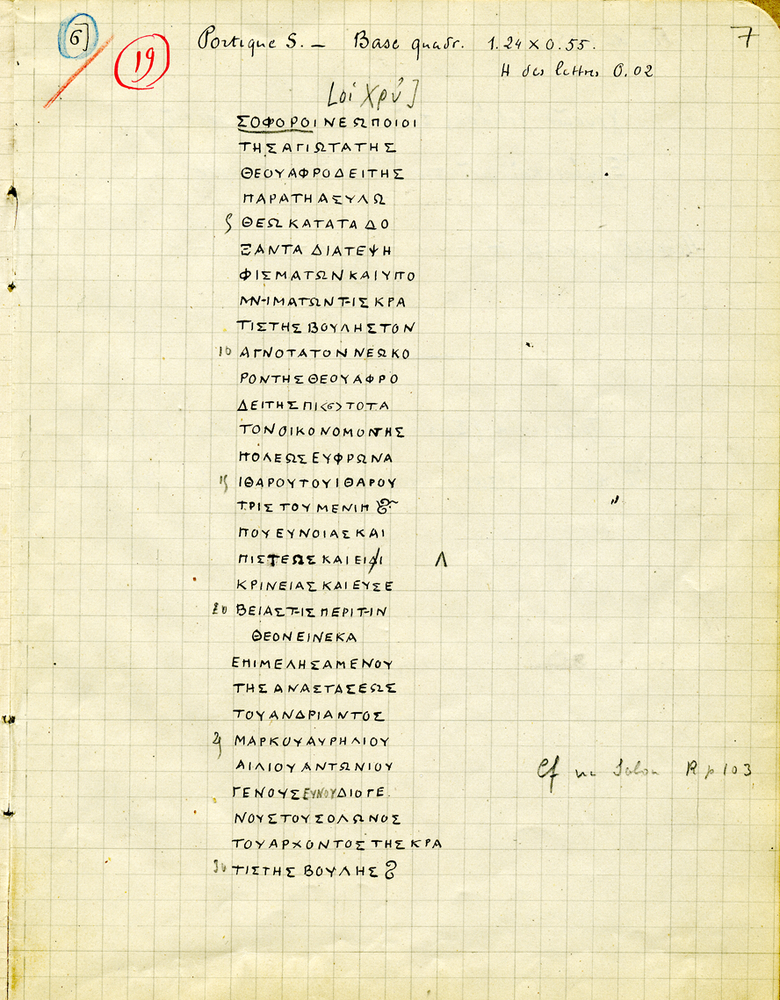 6
19
Portique S. — Base quadr. 1.24 x 0.55.
7
H des lettres 0.02
[οἱ Χρυ]
ΣΟΦΟΡΟΙΝΕΩΠΟΙΟΙ
ΤΗΣΑΓΙΩΤΑΤΗΣ
ΘΕΟΥΑΦΡΟΔΕΙΤΗΣ
ΠΑΡΑΤΗΑΣΥΛΩ
5 ΘΕΩΚΑΤΑΤΑΔΟ
ΞΑΝΤΑΔΙΑΤΕΨΗ
ΦΙΣΜΑΤΩΝΚΑΙΥΠΟ
ΜΝΗΜΑΤΩΝΤΗΣΚΡΑ
ΤΙΣΤΗΣΒΟΥΛΗΣΤΟΝ
10 ΑΓΝΟΤΑΤΟΝΝΕΩΚΟ
ΡΟΝΤΗΣΘΕΟΥΑΦΡΟ
ΔΕΙΤΗΣΠΙ<σ>ΤΟΤΑ
ΤΟΝΟΙΚΟΝΟΜΟΝΤΗΣ
ΠΟΛΕΩΣΕΥΦΡΩΝΑ
15 ΙΘΑΡΟΥΤΟΥΙΘΑΡΟΥ
ΤΡΙΣΤΟΥΜΕΝΙΠ
ΠΟΥΕΥΝΟΙΑΣΚΑΙ
ΠΙΣΤΕΩΣΚΑΙΕΙΔΙ Λ
ΚΡΙΝΕΙΑΣΚΑΙΕΥΣΕ
20 ΒΕΙΑΣΤΗΣΠΕΡΙΤΗΝ
ΘΕΟΝΕΙΝΕΚΑ
ΕΠΙΜΕΛΗΣΑΜΕΝΟΥ
ΤΗΣΑΝΑΣΤΑΣΕΩΣ
ΤΟΥΑΝΔΡΙΑΝΤΟΣ
25 ΜΑΡΚΟΥΑΥΡΗΛΙΟΥ
ΑΙΛΙΟΥΑΝΤΩΝΙΟΥ
Cf R p 103
ΓΕΝΟΥΣΕΥΝΟΥΔΙΟΓΕ
ΝΟΥΣΤΟΥΣΟΛΩΝΟΣ
ΤΟΥΑΡΧΟΝΤΟΣΤΗΣΚΡΑ
30 ΤΙΣΤΗΣΒΟΥΛΗΣ